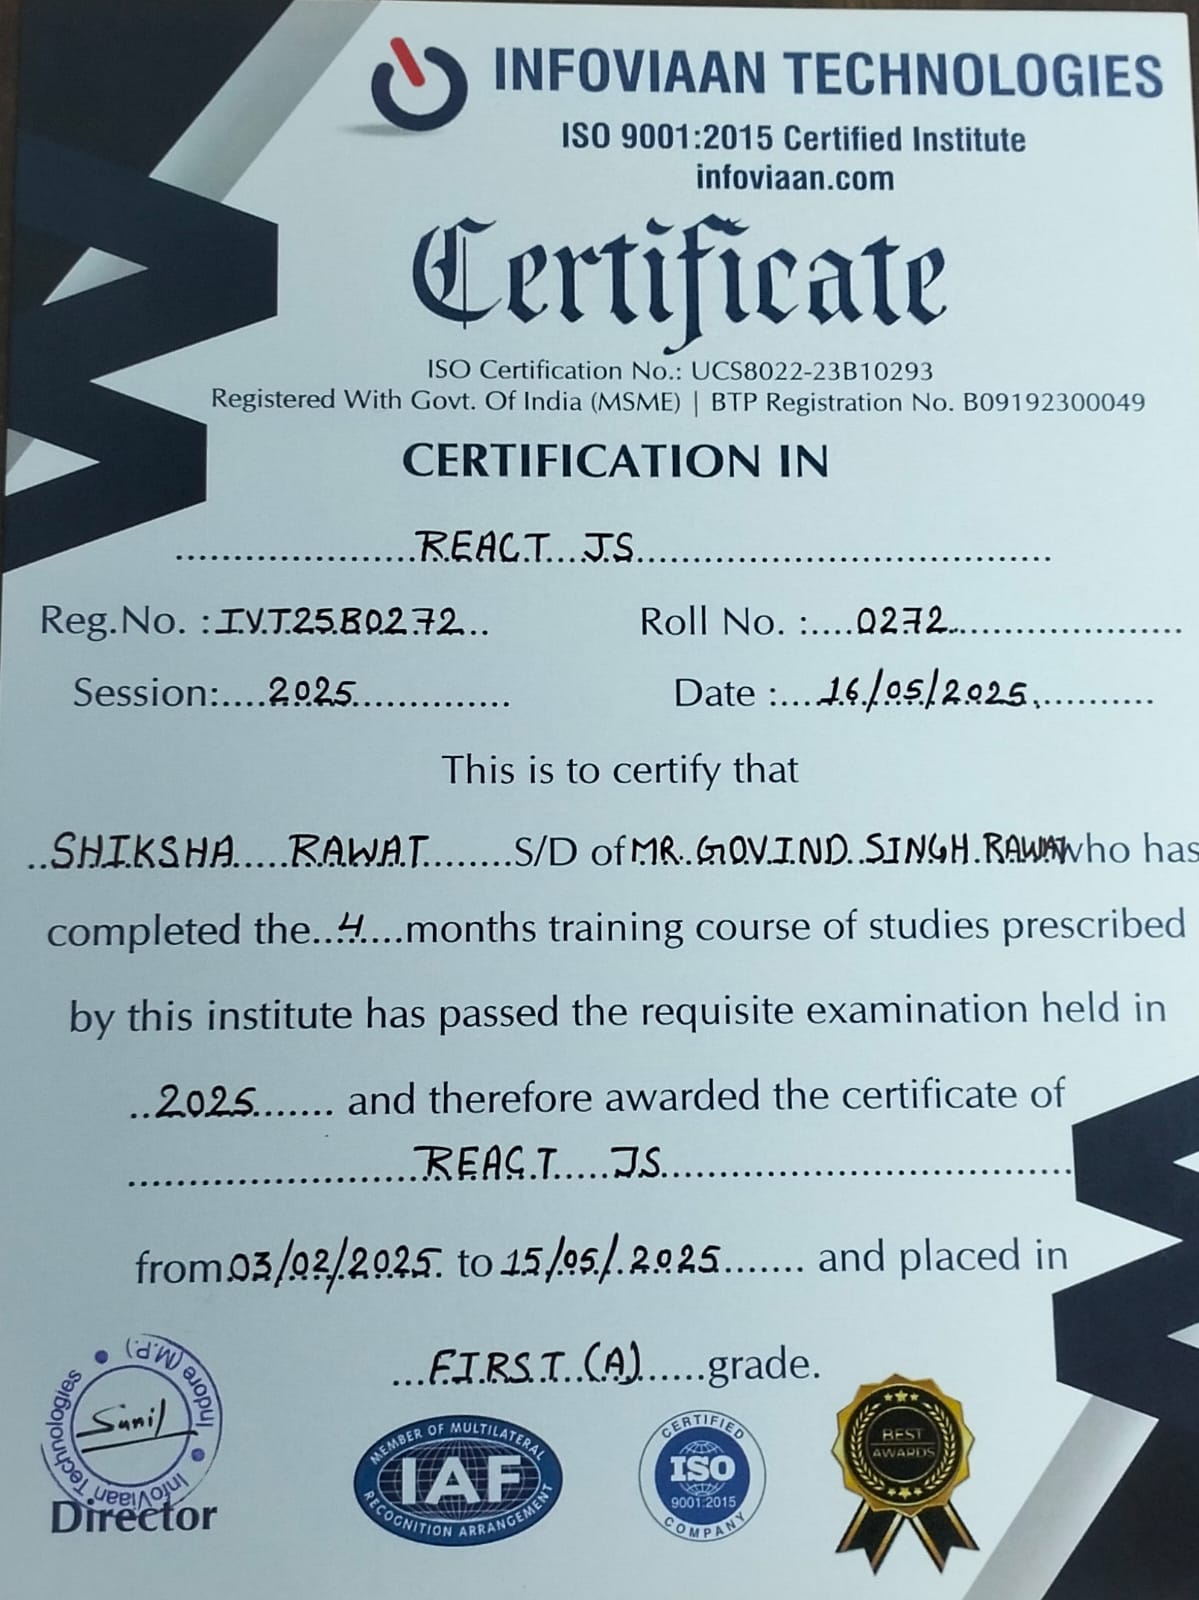 INFOVIAAN TECHNOLOGIES
ISO 9001:2015 Certified Institute
infoviaan.com
Certificate
ISO Certification No.: UCS8022-23B10293
Registered With Govt. Of India (MSME) | BTP Registration No. B09192300049
CERTIFICATION IN
REACT JS
Reg.No. : IVT25B0272 Roll No. : 0272
Session: 2025 Date : 16/05/2025
This is to certify that
SHIKSHA RAWAT S/D of MR. GOVIND SINGH RAWAT who has
completed the 4 months training course of studies prescribed
by this institute has passed the requisite examination held in
2025 and therefore awarded the certificate of
REACT JS
from 03/02/2025 to 15/05/2025 and placed in
FIRST (A) grade.
InfoViaan Technologies • Indore (M.P.) •
Sunil
Director
MEMBER OF MULTILATERAL
IAF
RECOGNITION ARRANGEMENT
CERTIFIED
ISO
9001:2015
COMPANY
BEST
AWARDS